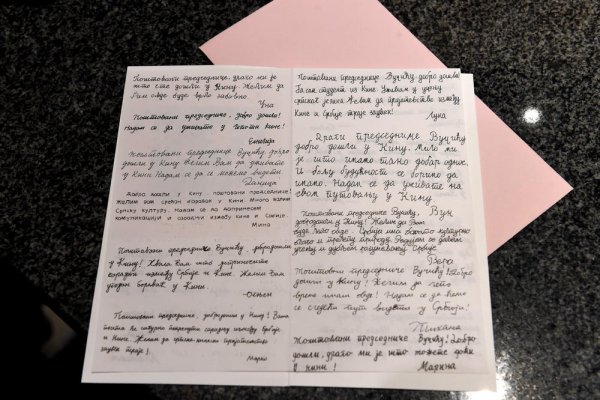 Поштовани председниче, драго ми је
што сте дошли у Кину. Желим да
Вам овде буде врло забавно.
Уна
Поштовани председниче, добро дошли!
Надам се да уживате у лепоти Кине!
Евгенија
Поштовани председниче Вучићу, добро
дошли у Кину. Желим Вам да уживате
у Кини. Надам се да се можемо видети.
Даница
Добро дошли у Кину, поштовани председниче!
Желим вам срећан боравак у Кини. Много волим
Српску културу. Надам се да допринесем
комуникацији и сарадњи између Кине и Србије.
Мина
Поштовани председниче Вучићу, добродошли
у Кину! Хвала Вам што доприносите
сарадњи између Србије и Кине. Желим Вам
угодни боравак у Кини.
Огњен
Поштовани председниче, добродошли у Кину! Ваша
посета ће сигурно унапредити сарадњу између Србије
и Кине. Желим да српско-кинеско пријатељство
заувек траје!
Марко
Поштовани председниче Вучићу, добро дошли!
Ја сам студент из Кине. Уживам у учењу
српског језика. Желим да пријатељство између
Кине и Србије траје заувек!
Лука
Драги председниче Вучићу
добро дошли у Кину. Мило ми
је што имамо тако добар однос.
И бољу будућност се боримо да
имамо. Надам се да уживате на
свом путовању у Кину.
Вук
Поштовани председниче Вучићу,
добродошли у Кину! Желим да Вам
буде лепо овде. Србија има богату културну
и природу. Радујем се даљем
учењу и дубљем Србије.
Вера
Поштовани председниче Вучићу! Добро
дошли у Кину! Желим да лепо
време имате овде! Надам се да ћемо
се следећи пут видети у Србији!
Тихана
Поштовани председниче Вучићу! Добро
дошли, драго ми је што можете доћи
у Кини!
Марина